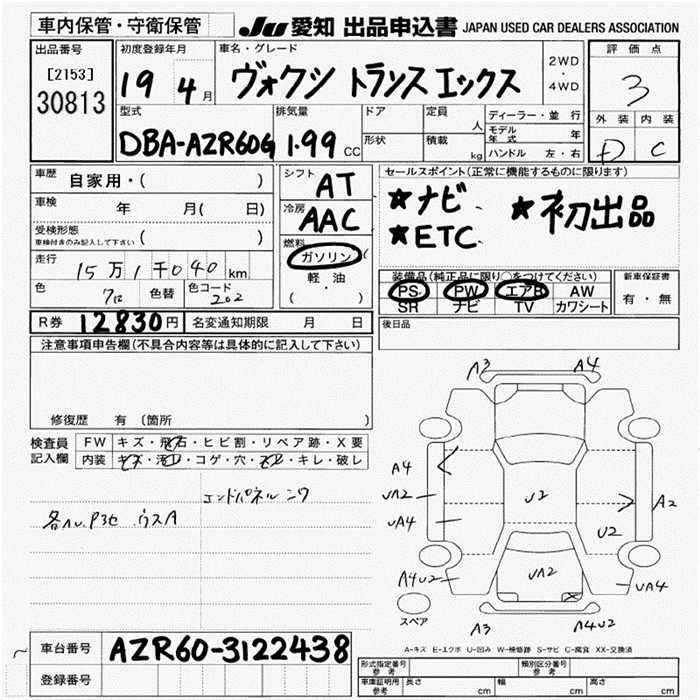 車内保管・守衛保管
JU 愛知 出品申込書 JAPAN USED CAR DEALERS ASSOCIATION
出品番号
[2153]
30813
初度登録年月
19 4月
車名・グレード
ヴォクシ トランスエックス
2WD
・
4WD
評価点
3
外装 内装
D C
型式
DBA-AZR60G
排気量
1.99 CC
ドア
形状
定員
人
積載
kg
ディーラー・並行
モデル年式 年
ハンドル 左・右
車歴
自家用・( )
車検 年 月( 日)
受検形態
車検付きのみ記入して下さい ( )
走行
15万1千040km
色
クロ
色替
色コード
202
シフト
AT
冷房
AAC
燃料
ガソリン
軽・油
( ・ )
セールスポイント(正常に機能するものに限ります)
★ナビ
★ETC
★初出品
装備品(純正品に限り○をつけてください)
PS PW エアB AW
SR ナビ TV カワシート
新車保証書
有・無
R券 12830円
名変通知期限 月 日
後日品
注意事項申告欄(不具合内容等は具体的に記入して下さい)
修復歴 有 〔箇所 〕
検査員
記入欄
FW キズ・飛石・ヒビ割・リペア跡・X要
内装 キズ・汚れ・コゲ・穴・スレ・キレ・破レ
エンドパネル ニワ
ウスA
A3
A4
A4
UA2
UA4
U2
A2
U2
UA2
A4U2
UA4
スペア
A3
A4U2
A-キズ E-エクボ U-凹み W-補修跡 S-サビ C-腐食 XX-交換済
車台番号
AZR60-3122438
登録番号
形式指定番号
参考
類別区分番号
参考
車庫証明用
参考
長さ cm
幅 cm
高さ cm